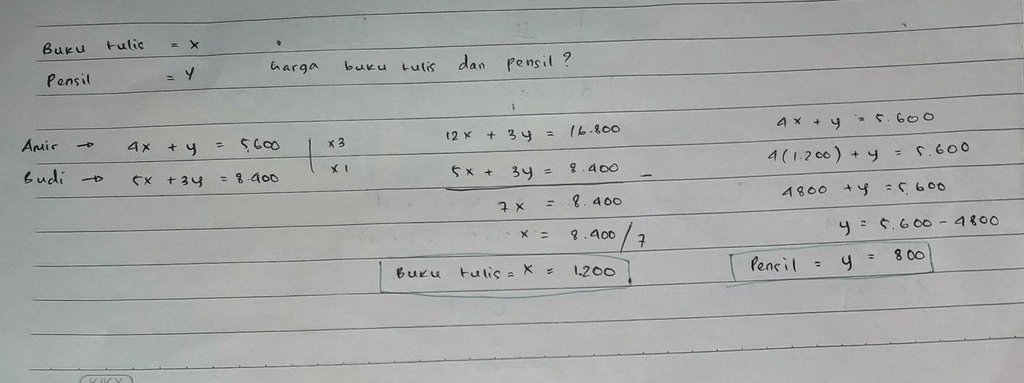 Buku tulis = x
Pensil = y
Harga buku tulis dan pensil?
Amir → 4x + y = 5.600 | x3
Budi → 5x + 3y = 8.400 | x1
12x + 3y = 16.800
5x + 3y = 8.400 -
7x = 8.400
x = 8.400/7
Buku tulis = x = 1.200
4x + y = 5.600
4(1.200) + y = 5.600
4800 + y = 5.600
y = 5.600 - 4800
Pensil = y = 800
KIKY